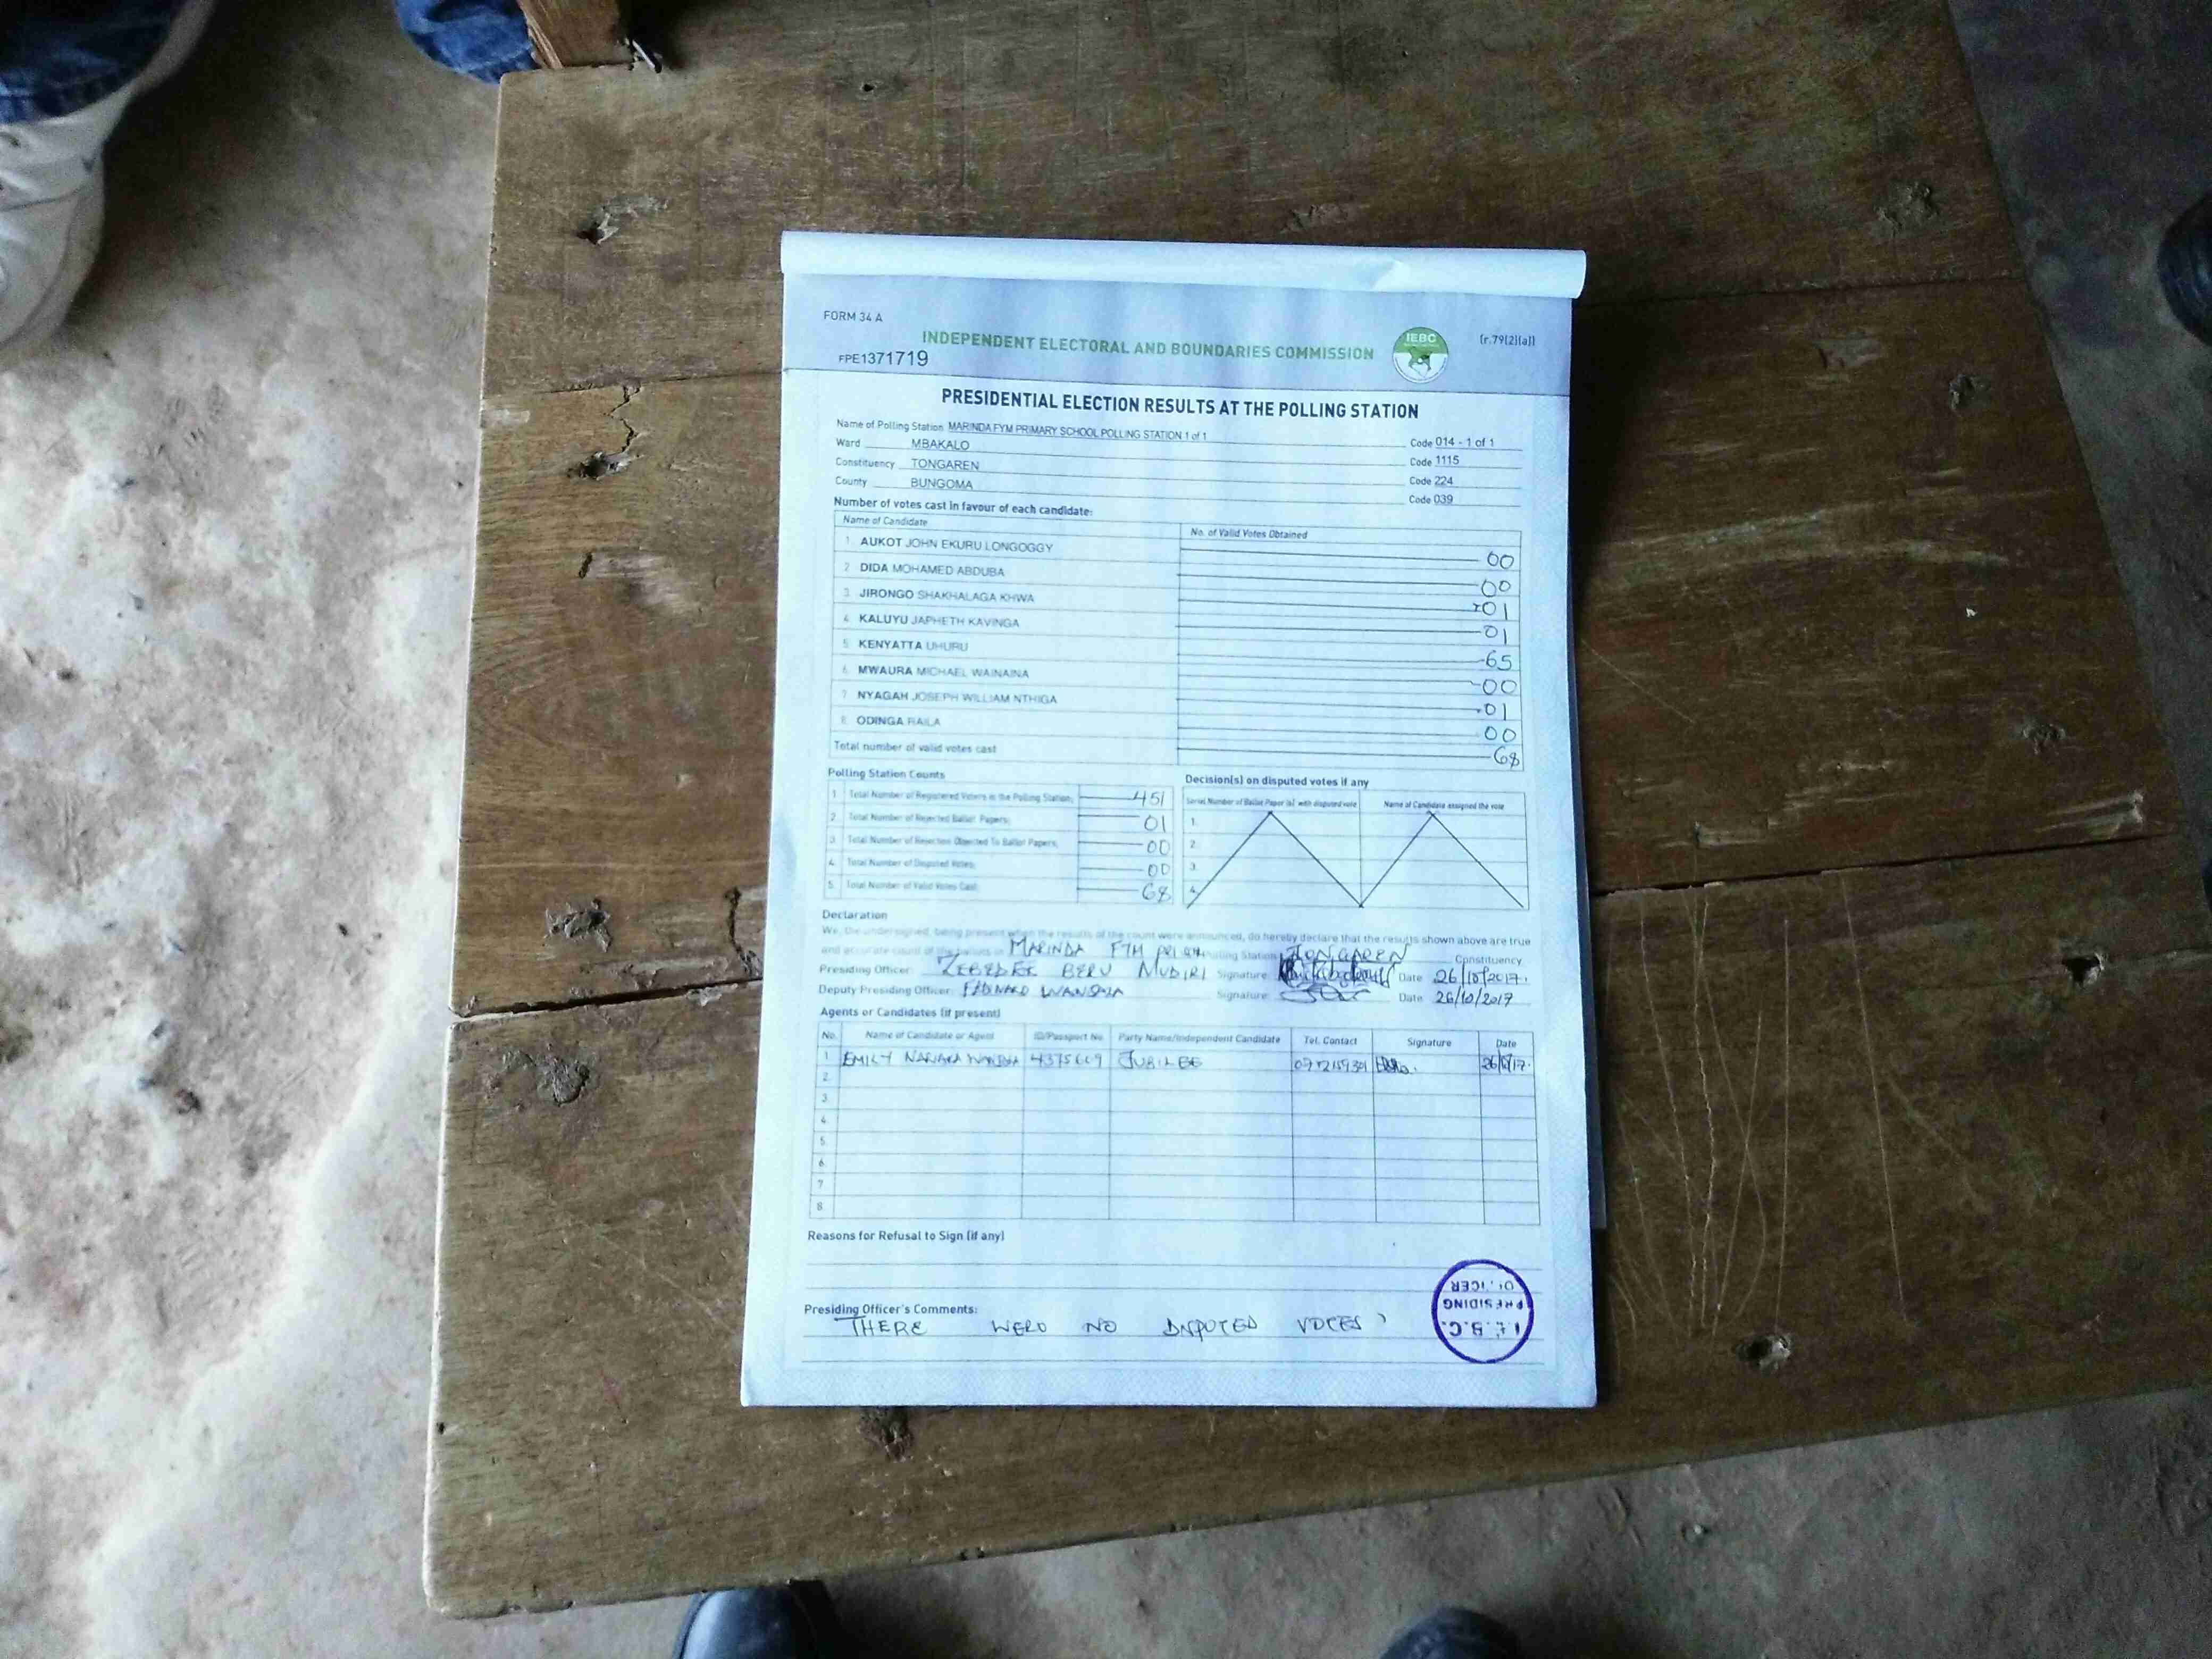 FORM 34 A
INDEPENDENT ELECTORAL AND BOUNDARIES COMMISSION
IEBC
(r.79(2)(a))
FPE1371719
PRESIDENTIAL ELECTION RESULTS AT THE POLLING STATION
Name of Polling Station MARINDA FYM PRIMARY SCHOOL POLLING STATION 1 of 1 Code 014 - 1 of 1
Ward MBAKALO Code 1115
Constituency TONGAREN Code 224
County BUNGOMA Code 039
Number of votes cast in favour of each candidate:
Name of Candidate No. of Valid Votes Obtained
1 AUKOT JOHN EKURU LONGOGGY 00
2 DIDA MOHAMED ABDUBA 00
3 JIRONGO SHAKHALAGA KHWA 01
4 KALUYU JAPHETH KAVINGA 01
5 KENYATTA UHURU 65
6 MWAURA MICHAEL WAINAINA 00
7 NYAGAH JOSEPH WILLIAM NTHIGA 01
8 ODINGA RAILA 00
Total number of valid votes cast 68
Polling Station Counts
1. Total Number of Registered Voters in the Polling Station; 451
2. Total Number of Rejected Ballot Papers; 01
3. Total Number of Rejection Objected To Ballot Papers; 00
4. Total Number of Disputed Votes; 00
5. Total Number of Valid Votes Cast; 68
Decision(s) on disputed votes if any
Serial Number of Ballot Paper (s) with disputed vote Name of Candidate assigned the vote
1.
2.
3.
4.
Declaration
We, the undersigned, being present when the results of the count were announced, do hereby declare that the results shown above are true
and accurate count of the ballots in MARINDA Polling Station TONGAREN Constituency.
Presiding Officer: ZEBEDEE BERU MUDIRI Signature: Date 26/10/2017.
Deputy Presiding Officer: Signature: Date 26/10/2017
Agents or Candidates (if present)
No. Name of Candidate or Agent ID/Passport No. Party Name/Independent Candidate Tel. Contact Signature Date
1 EMILY JUBILEE
2
3
4
5
6
7
8
Reasons for Refusal to Sign (if any)
Presiding Officer's Comments:
THERE WERE NO DISPUTED VOTES
I.E.B.C.
PRESIDING
OFFICER